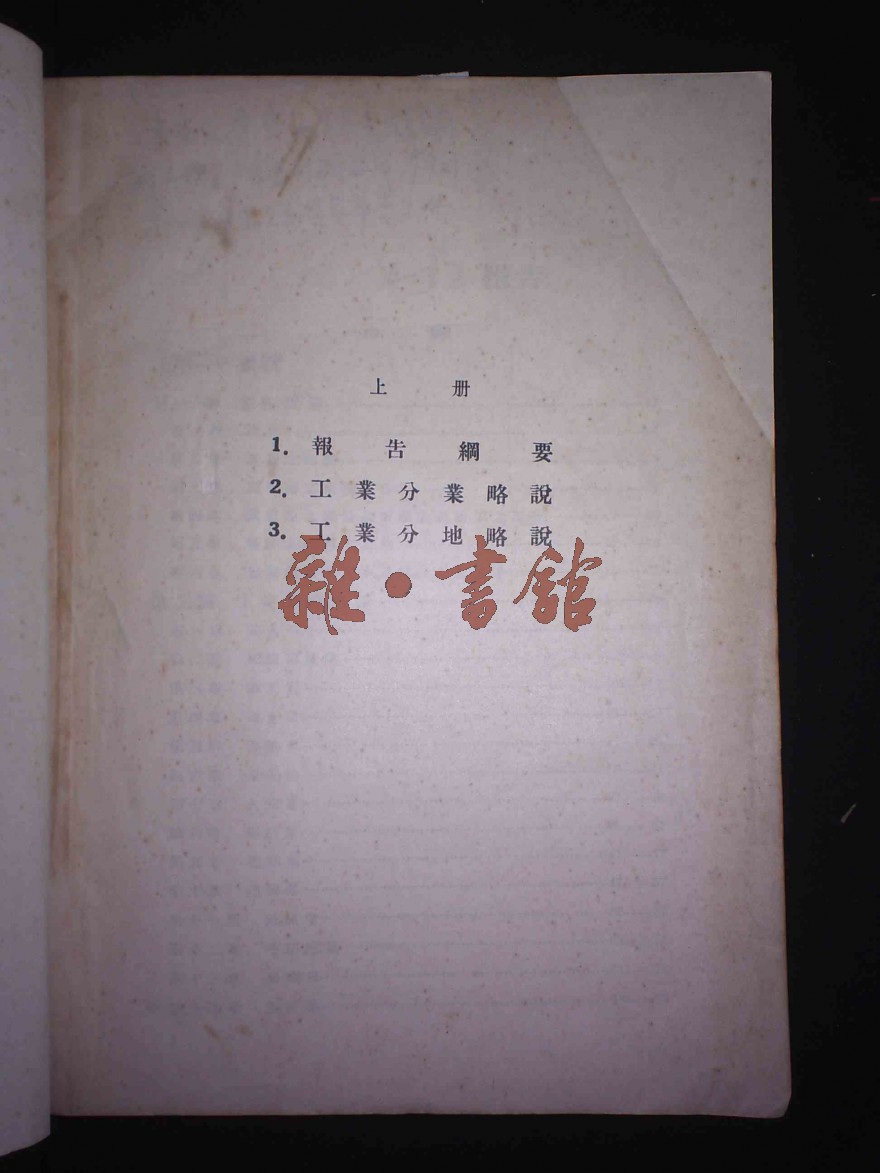 上册
1. 報告綱要
2. 工業分業略說
3. 工業分地略說
雜·書館